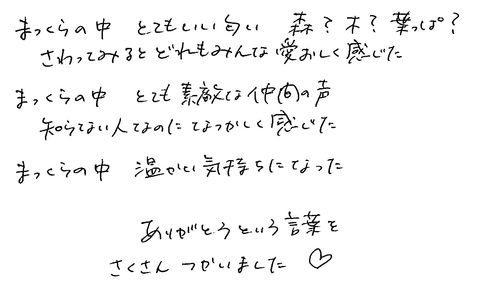 まっくらの中 とてもいい匂い 森？木？葉っぱ？
さわってみるとどれもみんな愛おしく感じた
まっくらの中 とても素敵な仲間の声
知らない人なのになつかしく感じた
まっくらの中 温かい気持ちになった
ありがとうという言葉を
たくさん つかいました ♡